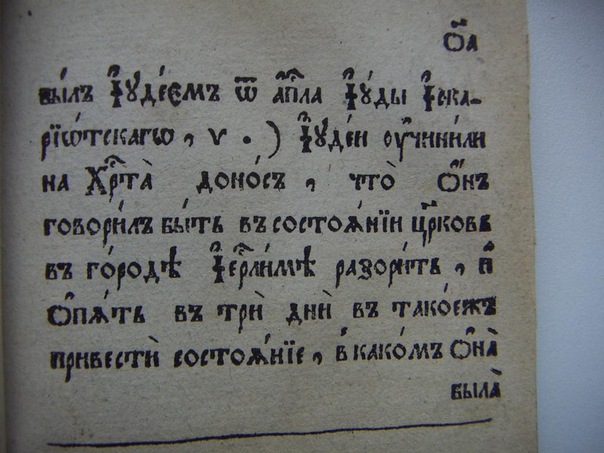 ѻ҃а
бы́лъ І҆ꙋде́ємъ ѿ а҆п҃ла І҆ꙋ́ды І҆ска-
рїѡ́тскагѡ , ѵ . ) І҆ꙋде́и ᲂу҆чини́ли
на Хрⷭ҇та̀ доно́съ , что̀ ѻ҆́нъ
говори́лъ бы́ть въ состоѧ́нїи цр҃ковь
въ го́родѣ І҆ерⷭ҇ли́мѣ разори́ть , и҆
ѻ҆пѧ́ть въ трѝ днѝ въ тако́ежъ
привестѝ состоѧ́нїе , в какомъ ѻ҆на̀
была̀